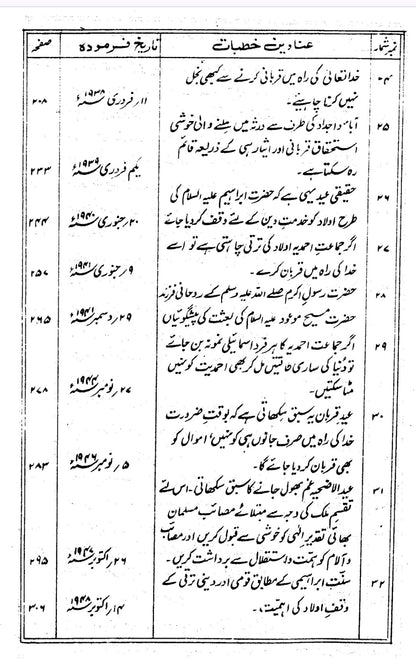 نمبرشمار عناوین خطبات تاریخ فرمودہ صفحہ
۲۴ خدا تعالیٰ کی راہ میں قربانی کرنے سے کبھی بخل
نہیں کرنا چاہیئے۔ ۱۱ فروری ۱۹۳۸ء ۲۰۸
۲۵ آباء و اجداد کی طرف سے ورثہ میں ملنے والی خوشی
استحقاق قربانی اور ایثار ہی کے ذریعہ قائم
رہ سکتا ہے۔ یکم فروری ۱۹۳۹ء ۲۳۳
۲۶ حقیقی عید یہی ہے کہ حضرت ابراہیم علیہ السلام کی
طرح اولاد کو خدمتِ دین کے لئے وقف کردیا جائے ۲۰ جنوری ۱۹۴۰ء ۲۴۴
۲۷ اگر جماعت احمدیہ اولاد کی ترقی چاہتی ہے تو اسے
خدا کی راہ میں قربان کرے۔ ۹ جنوری ۱۹۴۱ء ۲۵۷
۲۸ حضرت رسول اکرم صلے اللہ علیہ وسلم کے روحانی فرزند
حضرت مسیح موعود علیہ السلام کی بعثت کی پیشگوئیاں ۲۹ دسمبر ۱۹۴۱ء ۲۶۵
۲۹ اگر جماعت احمدیہ کا ہر فرد اسماعیلی نمونہ بن جائے
تو دُنیا کی ساری طاقتیں مل کر بھی احمدیت کو نہیں
مٹا سکتیں۔ ۲۷ نومبر ۱۹۴۴ء ۲۷۸
۳۰ عید قربان یہ سبق سکھاتی ہے کہ بوقتِ ضرورت
خدا کی راہ میں صرف جانوں ہی کو نہیں، اموال کو
بھی قربان کر دیا جائے گا۔ ۵ نومبر ۱۹۴۶ء ۲۸۳
۳۱ عید الاضحیہ غم بھول جانے کا سبق سکھاتی۔ اس لئے
تقسیمِ ملک کی وجہ سے مبتلائے مصائب مسلمان
بھائی تقدیرِ الٰہی کو خوشی سے قبول کریں اور مصائب
و آلام کو ہمت و استقلال سے برداشت کریں۔ ۲۶ اکتوبر ۱۹۴۷ء ۲۹۵
۳۲ سنّتِ ابراہیمی کے مطابق قومی اور دینی ترقی کے
وقفِ اولاد کی اہمیت۔ ۱۴ اکتوبر ۱۹۴۸ء ۳۰۶